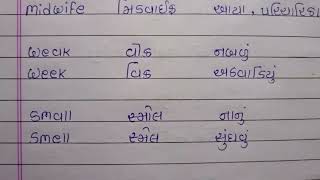 midwife મિડવાઈફ આયા, પરિચારિકા
weak વીક નબળું
week વિક અઠવાડિયું
small સ્મોલ નાનું
smell સ્મેલ સુંઘવું